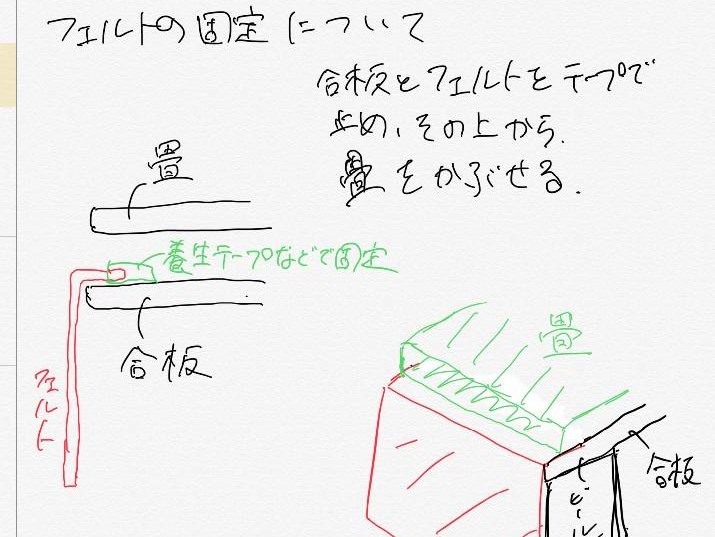 フェルトの固定について
合板とフェルトをテープで
止め、その上から、
畳をかぶせる.
畳
養生テープなどで固定
合板
フェルト
畳
合板
ビール